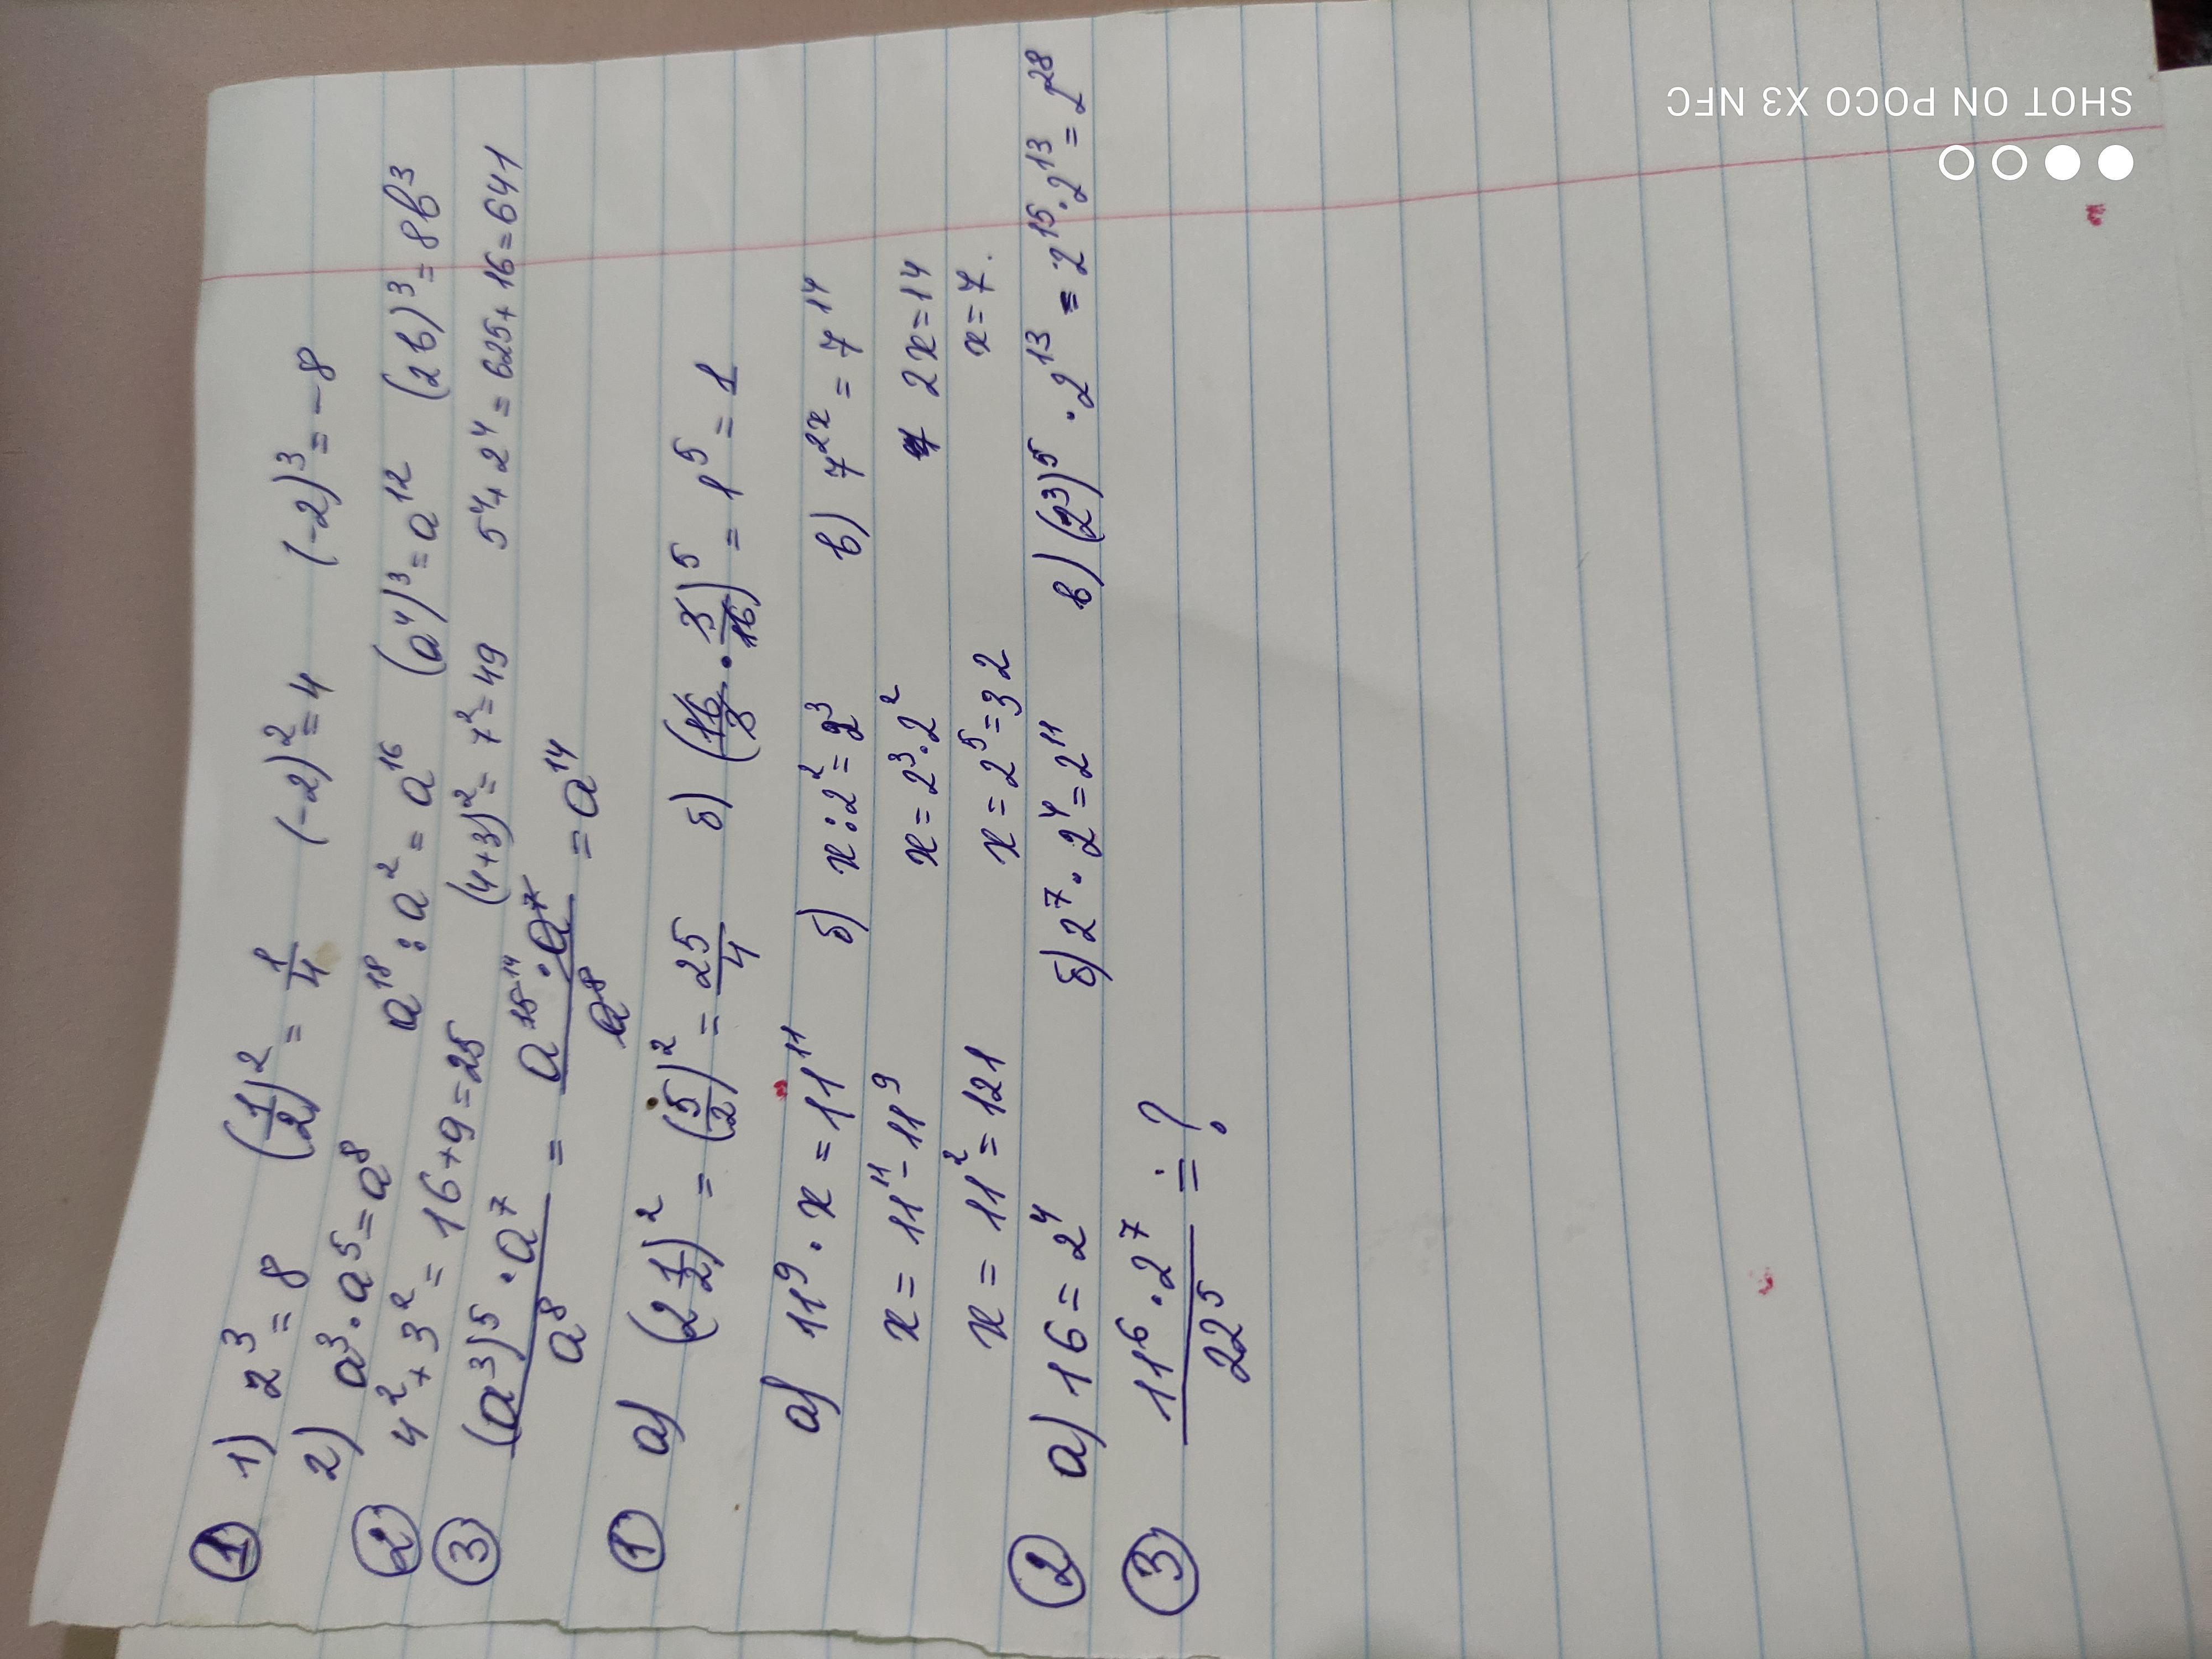 ① 1) 2³ = 8 (1/2)² = 1/4 (-2)² = 4 (-2)³ = -8
2) a³ · a⁵ = a⁸ a¹⁸ : a² = a¹⁶ (a⁴)³ = a¹² (2b)³ = 8b³
② 4² + 3² = 16 + 9 = 25 (4+3)² = 7² = 49 5⁴ + 2⁴ = 625 + 16 = 641
③ (a³)⁵ · a⁷ / a⁸ = a¹⁵ ¹⁴ · a⁷ / a⁸ = a¹⁴
① а) (2 1/2)² = (5/2)² = 25/4 б) (16/3 · 3/16)⁵ = 1⁵ = 1
а) 11⁹ · x = 11¹¹ б) x : 2² = 2³ в) 7²ˣ = 7¹⁴
x = 11¹¹ - 11⁹ x = 2³ · 2² 2x = 14
x = 11² = 121 x = 2⁵ = 32 x = 7.
② а) 16 = 2⁴ б) 2⁷ · 2⁴ = 2¹¹ в) (2³)⁵ · 2¹³ = 2¹⁵ · 2¹³ = 2²⁸
③ 11⁶ · 2⁷ / 22⁵ = ?
SHOT ON POCO X3 NFC